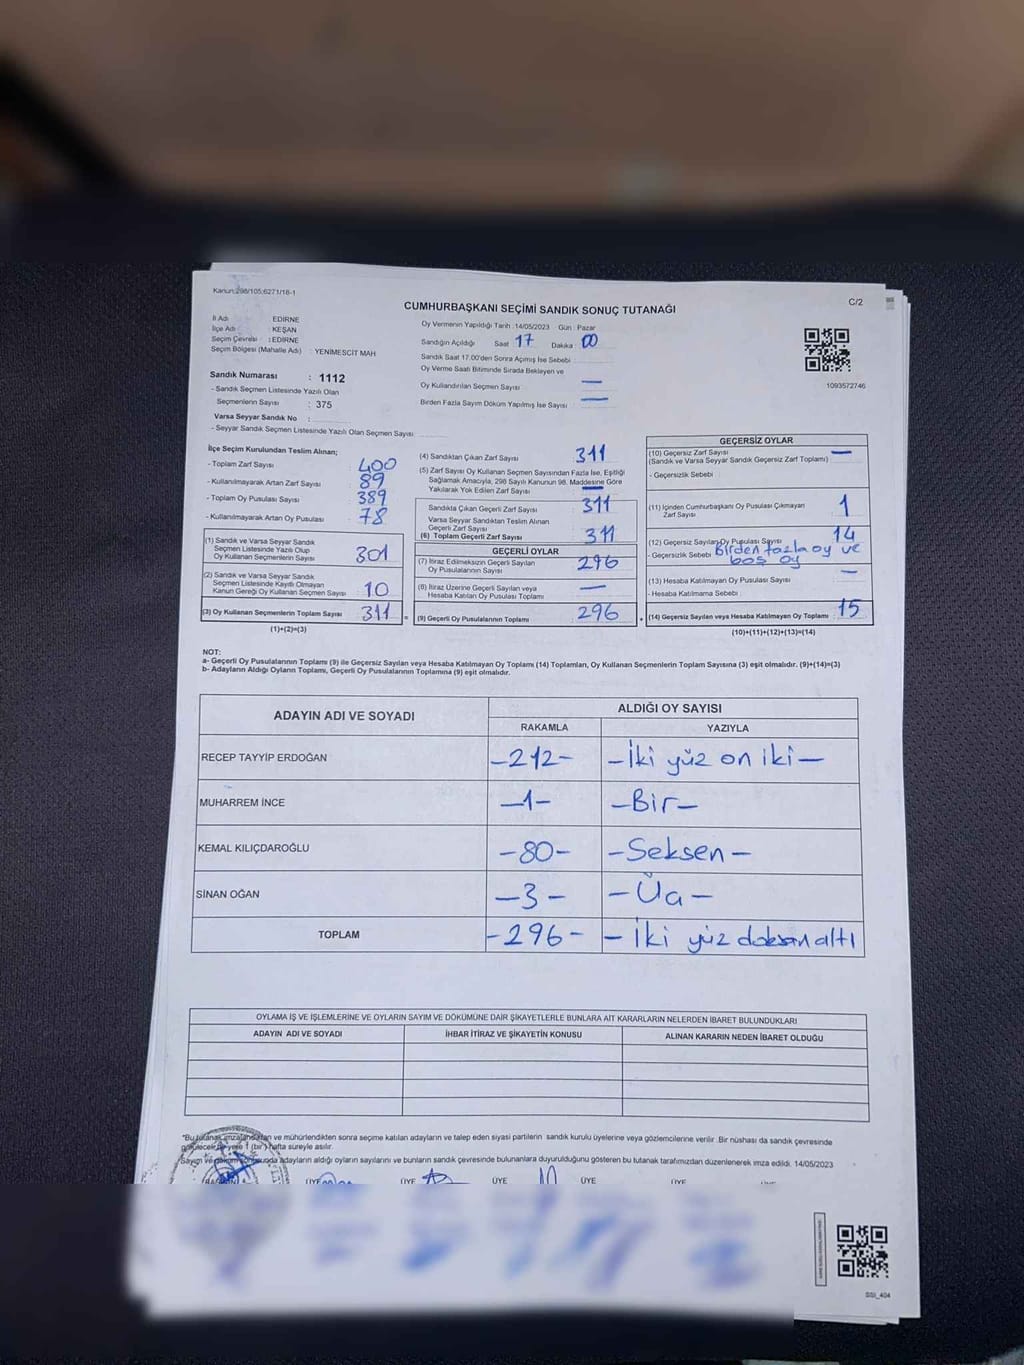 Kanun:298/105;6271/18-1
C/2
CUMHURBAŞKANI SEÇİMİ SANDIK SONUÇ TUTANAĞI
İl Adı EDİRNE
İlçe Adı : KEŞAN
Seçim Çevresi : EDİRNE
Seçim Bölgesi (Mahalle Adı) : YENİMESCİT MAH
Sandık Numarası : 1112
- Sandık Seçmen Listesinde Yazılı Olan
Seçmenlerin Sayısı : 375
Varsa Seyyar Sandık No :
- Seyyar Sandık Seçmen Listesinde Yazılı Olan Seçmen Sayısı
Oy Vermenin Yapıldığı Tarih :14/05/2023 Gün : Pazar
Sandığın Açıldığı Saat 17 Dakika 00
Sandık Saat 17.00'den Sonra Açımış İse Sebebi
Oy Verme Saati Bitiminde Sırada Bekleyen ve
Oy Kullandırılan Seçmen Sayısı —
Birden Fazla Sayım Döküm Yapılmış İse Sayısı —
1093572746
İlçe Seçim Kurulundan Teslim Alınan;
- Toplam Zarf Sayısı 400
- Kullanılmayarak Artan Zarf Sayısı 89
- Toplam Oy Pusulası Sayısı 389
- Kullanılmayarak Artan Oy Pusulası 78
(1) Sandık ve Varsa Seyyar Sandık
Seçmen Listesinde Yazılı Olup
Oy Kullanan Seçmenlerin Sayısı 301
(2) Sandık ve Varsa Seyyar Sandık
Seçmen Listesinde Kayıtlı Olmayan
Kanun Gereği Oy Kullanan Seçmen Sayısı 10
(3) Oy Kullanan Seçmenlerin Toplam Sayısı 311
(1)+(2)=(3)
(4) Sandıktan Çıkan Zarf Sayısı 311
(5) Zarf Sayısı Oy Kullanan Seçmen Sayısından Fazla İse, Eşitliği
Sağlamak Amacıyla, 298 Sayılı Kanunun 98. Maddesine Göre
Yakılarak Yok Edilen Zarf Sayısı —
Sandıkta Çıkan Geçerli Zarf Sayısı 311
Varsa Seyyar Sandıktan Teslim Alınan
Geçerli Zarf Sayısı
(6) Toplam Geçerli Zarf Sayısı 311
GEÇERLİ OYLAR
(7) İtiraz Edilmeksizin Geçerli Sayılan
Oy Pusulalarının Sayısı 296
(8) İtiraz Üzerine Geçerli Sayılan veya
Hesaba Katılan Oy Pusulası Toplamı —
= (9) Geçerli Oy Pusulalarının Toplamı 296
GEÇERSİZ OYLAR
(10) Geçersiz Zarf Sayısı —
(Sandık ve Varsa Seyyar Sandık Geçersiz Zarf Toplamı)
- Geçersizlik Sebebi
(11) İçinden Cumhurbaşkanı Oy Pusulası Çıkmayan
Zarf Sayısı 1
(12) Geçersiz Sayılan Oy Pusulası Sayısı 14
- Geçersizlik Sebebi Birden fazla oy ve
boş oy
(13) Hesaba Katılmayan Oy Pusulası Sayısı —
- Hesaba Katılmama Sebebi
+ (14) Geçersiz Sayılan veya Hesaba Katılmayan Oy Toplamı : 15
(10)+(11)+(12)+(13)=(14)
NOT:
a- Geçerli Oy Pusulalarının Toplamı (9) ile Geçersiz Sayılan veya Hesaba Katılmayan Oy Toplamı (14) Toplamları, Oy Kullanan Seçmenlerin Toplam Sayısına (3) eşit olmalıdır. (9)+(14)=(3)
b- Adayların Aldığı Oyların Toplamı, Geçerli Oy Pusulalarının Toplamına (9) eşit olmalıdır.
ADAYIN ADI VE SOYADI ALDIĞI OY SAYISI
RAKAMLA YAZIYLA
RECEP TAYYİP ERDOĞAN -212- -İki yüz on iki-
MUHARREM İNCE -1- -Bir-
KEMAL KILIÇDAROĞLU -80- -Seksen-
SİNAN OĞAN -3-
TOPLAM -296- -İki yüz doksan altı
OYLAMA İŞ VE İŞLEMLERİNE VE OYLARIN SAYIM VE DÖKÜMÜNE DAİR ŞİKAYETLERLE BUNLARA AİT KARARLARIN NELERDEN İBARET BULUNDUKLARI
ADAYIN ADI VE SOYADI İHBAR İTİRAZ VE ŞİKAYETİN KONUSU ALINAN KARARIN NEDEN İBARET OLDUĞU
ve mühürlendikten sonra seçime katılan adayların ve talep eden siyasi partilerin sandık kurulu üyelerine veya gözlemcilerine verilir .Bir nüshası da sandık çevresinde
1 (bir) hafta süreyle asılır.
adayların aldığı oyların sayılarını ve bunların sandık çevresinde bulunanlara duyurulduğunu gösteren bu tutanak tarafımızdan düzenlenerek imza edildi. 14/05/2023
ÜYE ÜYE ÜYE ÜYE ÜYE
SSI_404